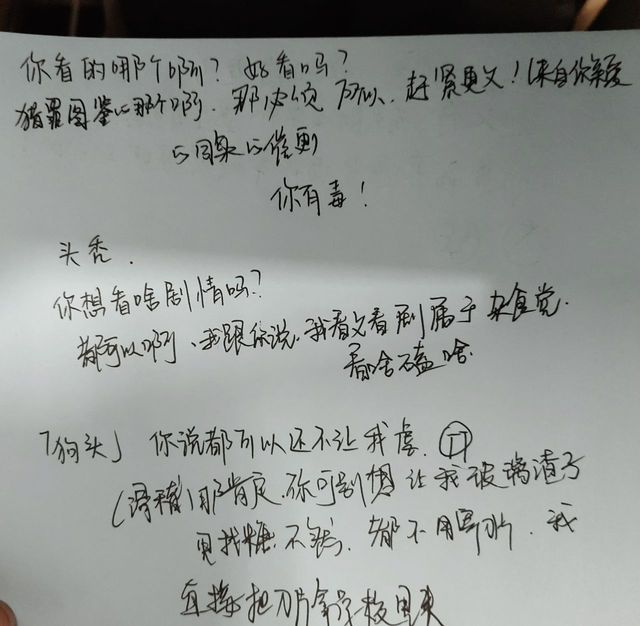 你看的哪个啊？好看吗？
猎罪图鉴的那个啊．那必须可以、赶紧更文！(来自你亲爱
的同桌的催更
你有毒！
头秃．
你想看啥剧情吗？
都可以啊、我跟你说，我看文看剧属于杂食党．
看啥磕啥．
「狗头」你说都可以还不让我虐．
(滑稽)那肯定，你可别想让我被玻璃渣子
找糖．不然．都不用寄，我
直接把刀片拿学校里来